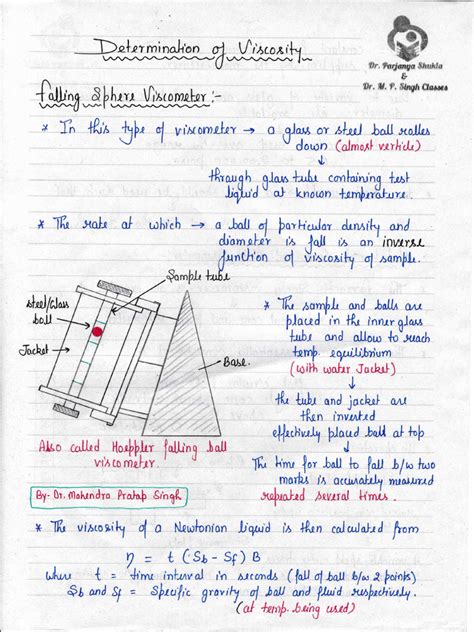 Determination of Viscosity
Dr. Parjanya Shukla
&
Dr. M. P. Singh Classes
Falling Sphere Viscometer :-
* In this type of viscometer → a glass or steel ball rolles
down (almost verticle)
↓
through glass tube containing test
liquid at known temperature.
* The rate at which → a ball of particular density and
diameter is fall is an inverse
function of viscosity of sample.
Sample tube
steel/Glass
ball
Jacket
Base.
Also called Hoeppler falling ball
viscometer.
By- Dr. Mahendra Pratap Singh
* The sample and balls are
placed in the inner glass
tube and allow to reach
temp. equilibrium
(with water Jacket)
↓
the tube and jacket are
then inverted
effectively placed ball at top
↓
The time for ball to fall b/w two
marks is accurately measured
repeated several times.
* The viscosity of a Newtonian liquid is then calculated from
η = t (Sb - Sf) B
where t = time interval in seconds (fall of ball b/w 2 points)
Sb and Sf = Specific gravity of ball and fluid respectively.
(at temp. being used)